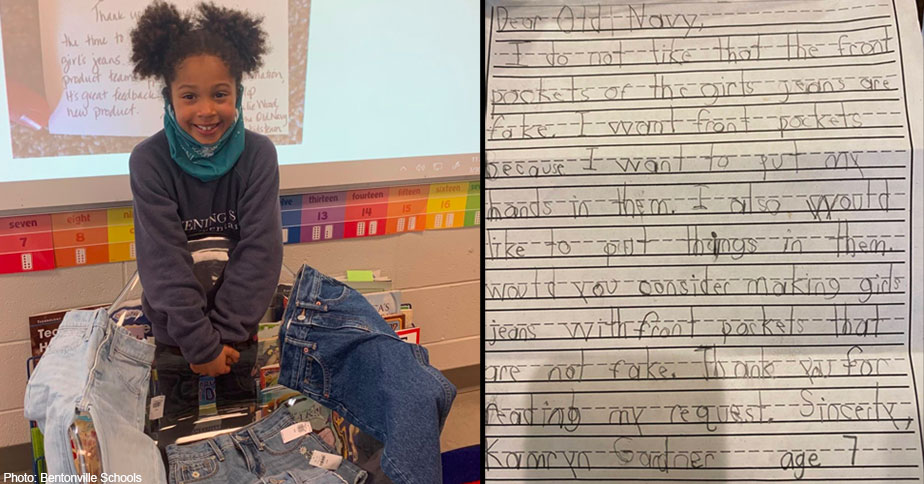 Thank you
the time to
girl's jeans.
product team
It's great feedback
new product.
ENNINGS
seven eight thirteen fourteen fifteen sixteen
7 8 13 14 15 16
Photo: Bentonville Schools
Dear Old Navy,
I do not like that the front
pockets of the girls jeans are
fake. I want front pockets
because I want to put my
hands in them. I also would
like to put things in them.
would you consider making girls
jeans with front pockets that
are not fake. Thank you for
reading my request. Sincerly,
Kamryn Gardner age 7